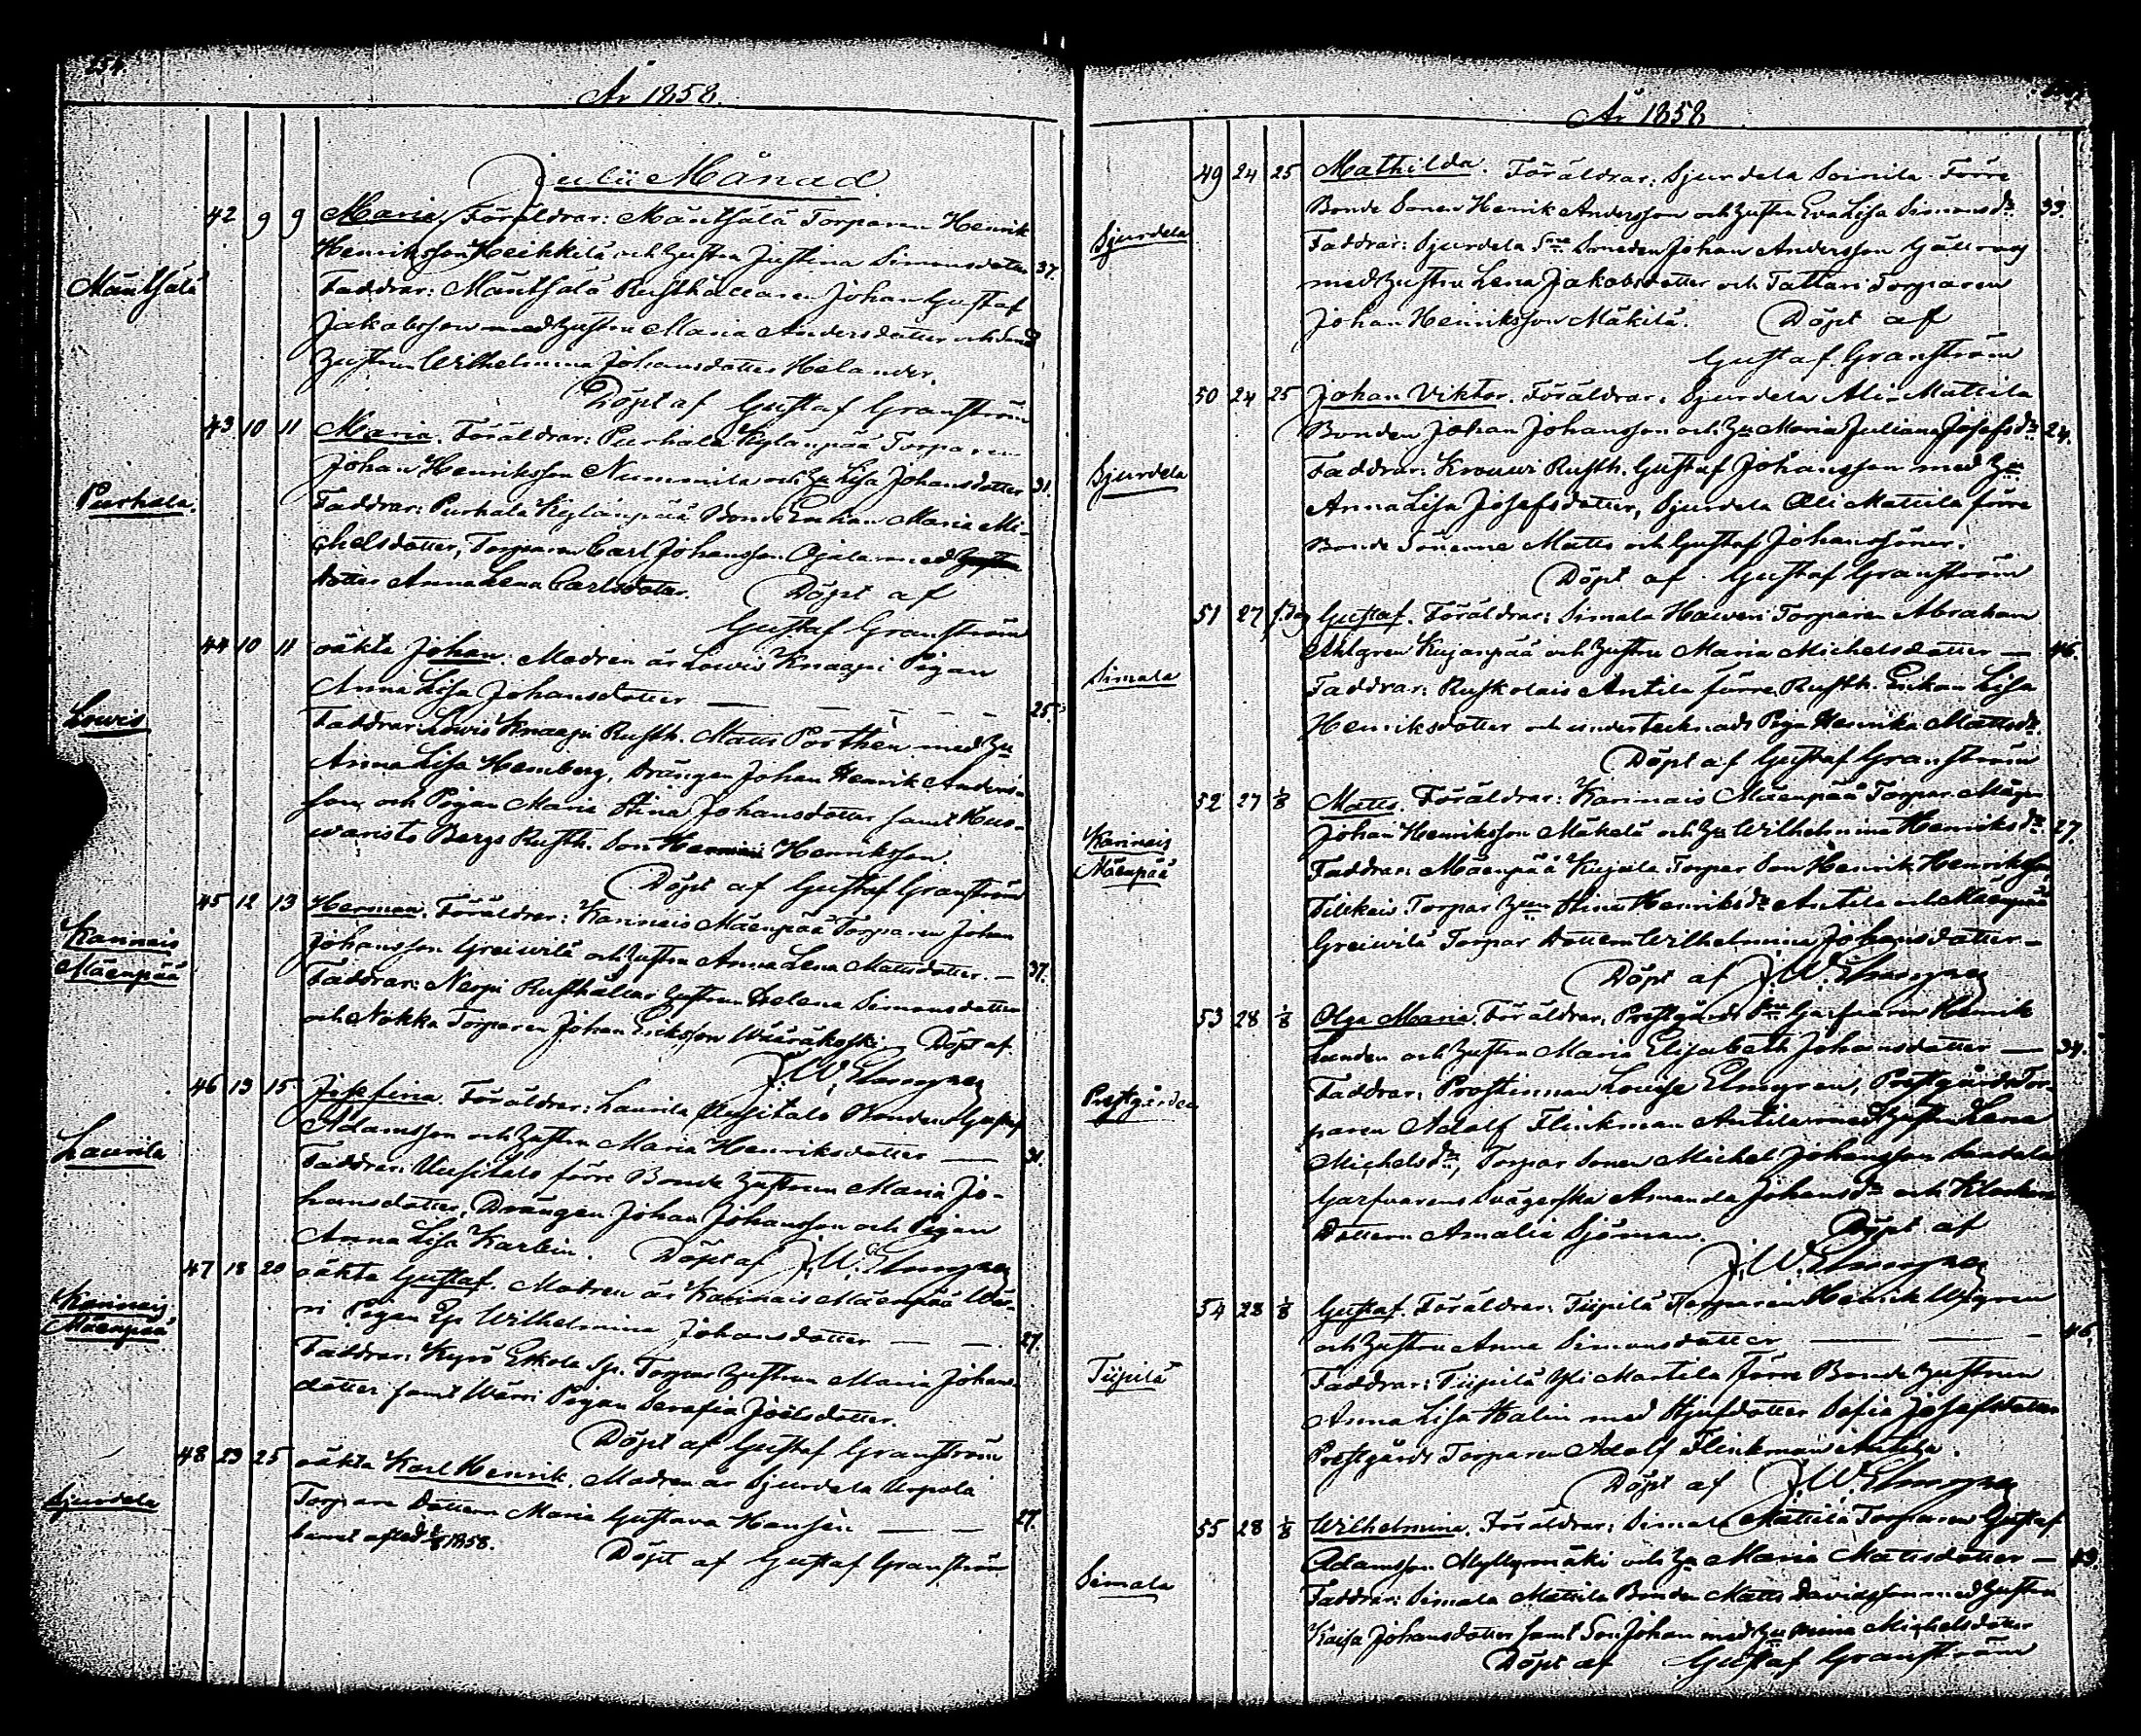 254.
År 1858.
Julii Månad
42 9 9 Maria, Föräldrar: Mäntsälä Torparen Henrik
Henriksson Heikkilä och hustru Justina Simonsdotter 37.
Mäntsälä
Faddrar: Mäntsälä Rusthållaren Johan Gustaf
Jakobsson med hustru Maria Andersdotter och
hustrun Wilhelmina Johansdotter Helander.
Döpt af Gustaf Granström
43 10 11 Maria. Föräldrar: Purhala Kylänpää Torparen
Johan Henriksson Nummila och hu Lisa Johansdotter 31.
Purhala
Faddrar: Purhala Kylänpää Bonde Enkan Maria Mi-
chelsdotter, Torparen Carl Johansson Ojala med
dotter Anna Lena Carlsdotter. Döpt af
Gustaf Granström
44 10 11 oäkta Johan. Modren är Lowis Knaapi Pigan
Anna Lisa Johansdotter 25
Lowis
Faddrar: Lowis Knaapi Rusth. Matts Porthen med hu
Anna Lisa Hemberg, Drängen Johan Henrik Anders-
son och Pigan Maria Stina Johansdotter samt Kus-
waristo Bergs Rusth. Son Henriksson.
Döpt af Gustaf Granström
45 12 13 Herman. Föräldrar: Karinais Mäenpää Torparen Johan
Johansson Greiwilä och hustru Anna Lena Mattsdotter. 37.
Karinais
Mäenpää
Faddrar: Neopi Rusthållar hustrun Helena Simonsdotter
och Nokka Torparen Johan Ericsson Wääräkoski. Döpt af
J. W. Elmgren
46 13 15 Josefina. Föräldrar: Laurila Uusitalo Bonden Gustaf
Adamsson och hustru Maria Henriksdotter 31.
Laurila
Faddrar: Uusitalo förre Bonde hustrun Maria Jo-
hansdotter, Drängen Johan Johansson och Pigan
Anna Lisa Karlin. Döpt af J. W. Elmgren
47 18 20 oäkta Gustaf. Modren är Karinais Mäenpää Wär-
ri Pigan Eva Wilhelmina Johansdotter 27.
Karinais
Mäenpää
Faddrar: Kyrö Eskola Sp. Torpar hustrun Maria Johans-
dotter samt Wärri Pigan Serafia Joelsdotter.
Döpt af Gustaf Granström
48 23 25 oäkta Karl Henrik. Modren är Sjurdela Urpola
Torpare dottern Maria Gustava Hansén 27.
Sjurdela
barnet afled 1858.
Döpt af Gustaf Granström
År 1858
49 24 25 Mathilda. Föräldrar: Sjurdela Soinila Förre
Bonde Sonen Henrik Andersson och hustru Eva Lisa Simonsdr 33.
Sjurdela
Faddrar: Sjurdela Sne Smeden Johan Andersson Gällnäs
med hustru Lena Jakobsdotter och Tattari Torparen
Johan Henriksson Mäkilä. Döpt af
Gustaf Granström
50 24 25 Johan Viktor. Föräldrar: Sjurdela Ali-Mattila
Bonden Johan Johansson och hu Maria Juliana Josefsdr 24.
Sjurdela
Faddrar: Krouwi Rusth. Gustaf Johansson med hu
Anna Lisa Josefsdotter, Sjurdela Ali Mattila förre
Bonde Sönerne Matts och Gustaf Johanssöner.
Döpt af Gustaf Granström
51 27 s.dag Gustaf. Föräldrar: Simala Haweri Torparen Abraham
Ahlgren Kujanpää och hustru Maria Michelsdotter 46.
Simala
Faddrar: Ruskolais Antila förre Rusth. Enkan Lisa
Henriksdotter och undertecknads Piga Henrika Mattsdr.
Döpt af Gustaf Granström
52 27 1/8 Matts. Föräldrar: Karinais Mäenpää Torpar Mågen
Johan Henriksson Mäkelä och hu Wilhelmina Henriksdr 27.
Karinais
Mäenpää
Faddrar: Mäenpää Kujala Torpar Son Henrik Henriksson,
Tilikais Torpar hun Stina Henriksdr Antila och Mäenpää
Greiwilä Torpar dottern Wilhelmina Johansdotter
Döpt af J. W. Elmgren
53 28 1/8 Olga Maria. Föräldrar: Prestgårds Garfvaren Henrik
Lunden och hustru Maria Elisabeth Johansdotter 34.
Prestgården
Faddrar: Prostinnan Louise Elmgren, Prestgårds Tor-
paren Adolf Flinkman Antila med hustru Lena
Michelsdr, Torpar Sonen Michel Johansson Sandala
Garfvarens Svägerska Amanda Johansdr och Klockare
Dottern Amalia Sjöman. Döpt af
J. W. Elmgren
54 28 1/8 Gustaf. Föräldrar: Tiipilä Torparen Henrik Wigren
och hustru Anna Simonsdotter 46.
Tiipilä
Faddrar: Tiipilä Yli Martila Förre Bonde hustrun
Anna Lisa Halin med Styfdotter Sofia Josefsdotter
Prestgårds Torparen Adolf Flinkman Antila.
Döpt af J. W. Elmgren
55 28 1/8 Wilhelmina. Föräldrar: Simala Mattila Torparen Gustaf
Adamsson Myllymäki och hu Maria Mattsdotter 43.
Simala
Faddrar: Simala Mattila Bonden Matts Davidsson med hustru
Kaisa Johansdotter samt Son Johan med hu Mina Michelsdotter
Döpt af Gustaf Granström